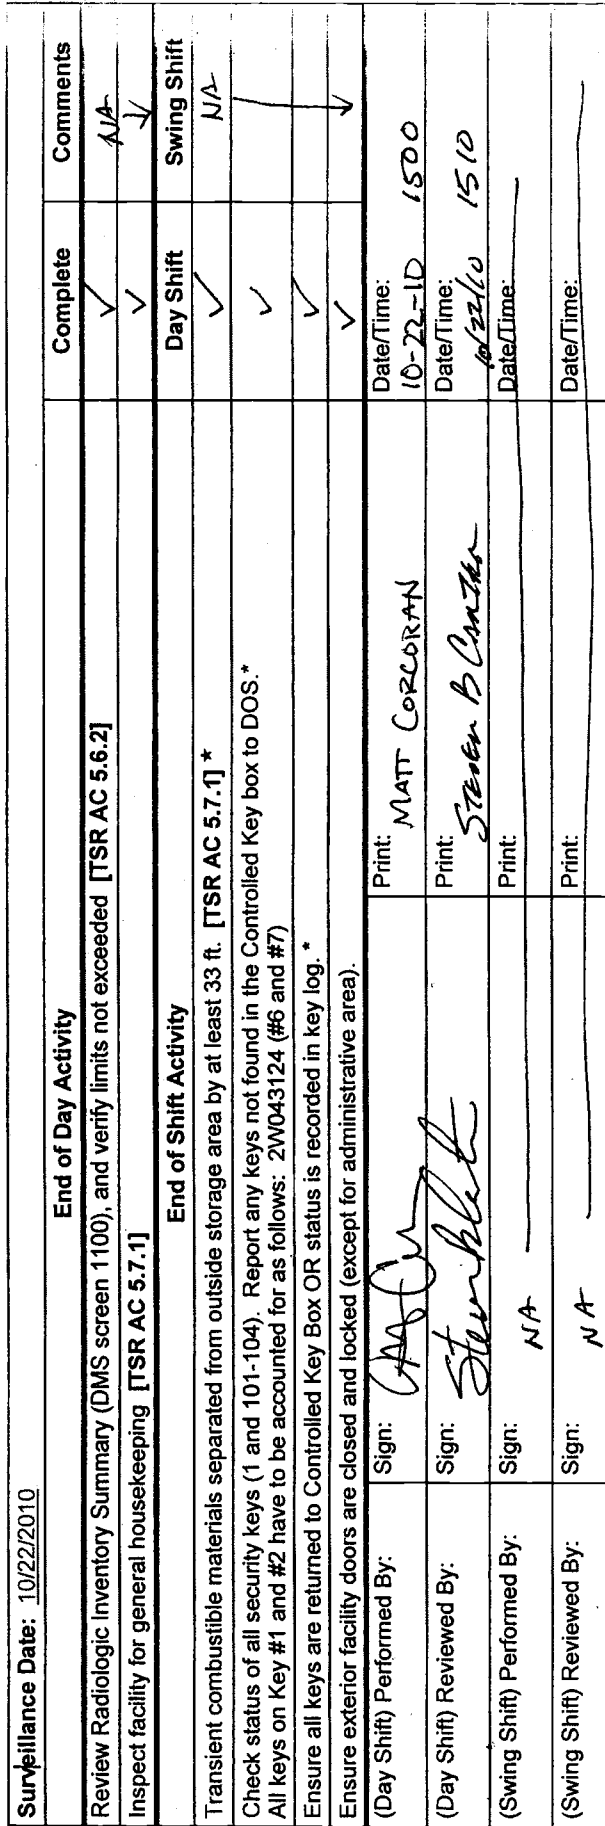 Surveillance Date: 10/22/2010
End of Day Activity Complete Comments
Review Radiologic Inventory Summary (DMS screen 1100), and verify limits not exceeded [TSR AC 5.6.2] ✓ NA
Inspect facility for general housekeeping [TSR AC 5.7.1] ✓ ↓
End of Shift Activity Day Shift Swing Shift
Transient combustible materials separated from outside storage area by at least 33 ft. [TSR AC 5.7.1] * ✓ NA
Check status of all security keys (1 and 101-104). Report any keys not found in the Controlled Key box to DOS.* ✓
All keys on Key #1 and #2 have to be accounted for as follows: 2W043124 (#6 and #7)
Ensure all keys are returned to Controlled Key Box OR status is recorded in key log. * ✓
Ensure exterior facility doors are closed and locked (except for administrative area). ✓
(Day Shift) Performed By: Sign: Print: MATT CORCORAN Date/Time: 10-22-10 1500
(Day Shift) Reviewed By: Sign: Print: Steven B Date/Time: 10/22/10 1510
(Swing Shift) Performed By: Sign: NA Print: Date/Time:
(Swing Shift) Reviewed By: Sign: NA Print: Date/Time: